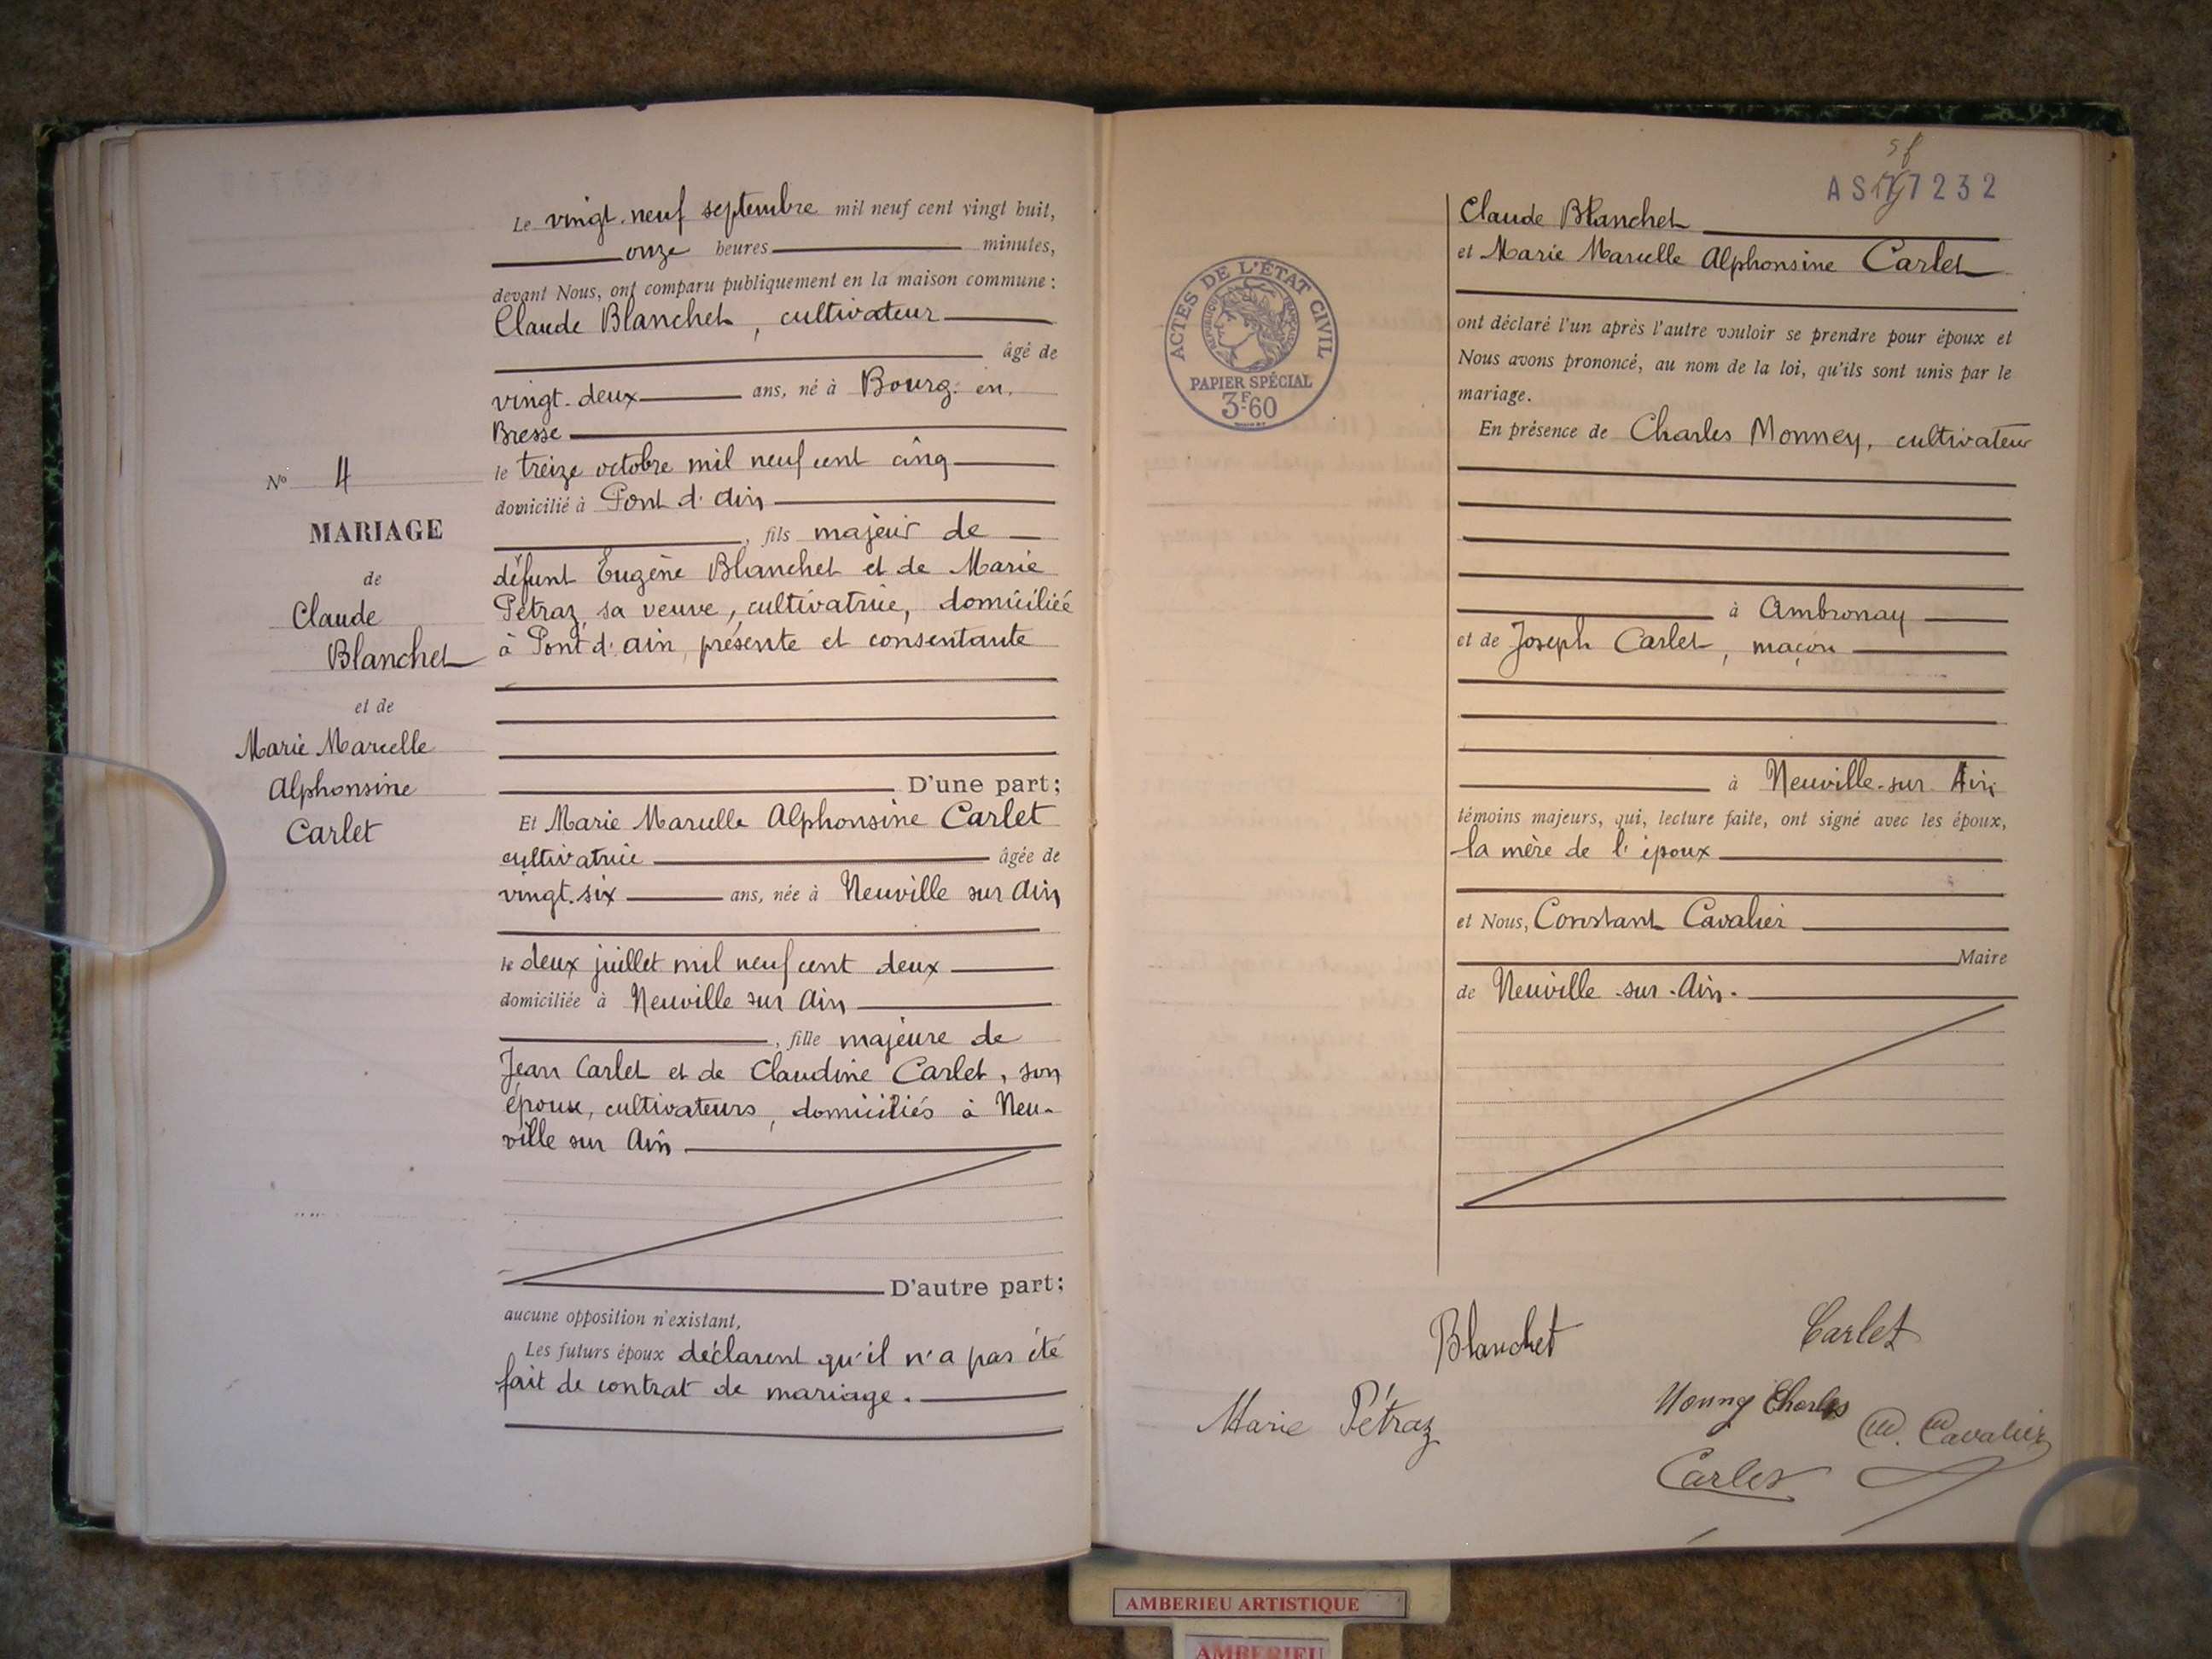 Le vingt-neuf septembre mil neuf cent vingt huit,
onze heures minutes,
devant Nous, ont comparu publiquement en la maison commune :
Claude Blanchet, cultivateur
âgé de
vingt-deux ans, né à Bourg-en-
Bresse
le treize octobre mil neuf cent cinq
domicilié à Pont d'ain
, fils majeur de
défunt Eugène Blanchet et de Marie
Pétraz, sa veuve, cultivatrice, domiciliée
à Pont d'ain, présente et consentante
D'une part;
Et Marie Marcelle Alphonsine Carlet
cultivatrice âgée de
vingt-six ans, née à Neuville sur Ain
le deux juillet mil neuf cent deux
domiciliée à Neuville sur Ain
, fille majeure de
Jean Carlet et de Claudine Carlet, son
épouse, cultivateurs, domiciliés à Neu-
ville sur Ain
D'autre part;
aucune opposition n'existant,
Les futurs époux déclarent qu'il n'a pas été
fait de contrat de mariage.
N° 4
MARIAGE
de
Claude
Blanchet
et de
Marie Marcelle
Alphonsine
Carlet
7232
ACTES DE L'ÉTAT CIVIL
PAPIER SPÉCIAL
3F.60
Claude Blanchet
et Marie Marcelle Alphonsine Carlet
ont déclaré l'un après l'autre vouloir se prendre pour époux et
Nous avons prononcé, au nom de la loi, qu'ils sont unis par le
mariage.
En présence de Charles Monney, cultivateur
à Ambronay
et de Joseph Carlet, maçon
à Neuville-sur-Ain
témoins majeurs, qui, lecture faite, ont signé avec les époux,
la mère de l'époux
et Nous, Constant Cavalier
Maire
de Neuville-sur-Ain.
Blanchet Carlet
Marie Pétraz Charles Cavalier
Carlet
AMBERIEU ARTISTIQUE
AMBERIEU